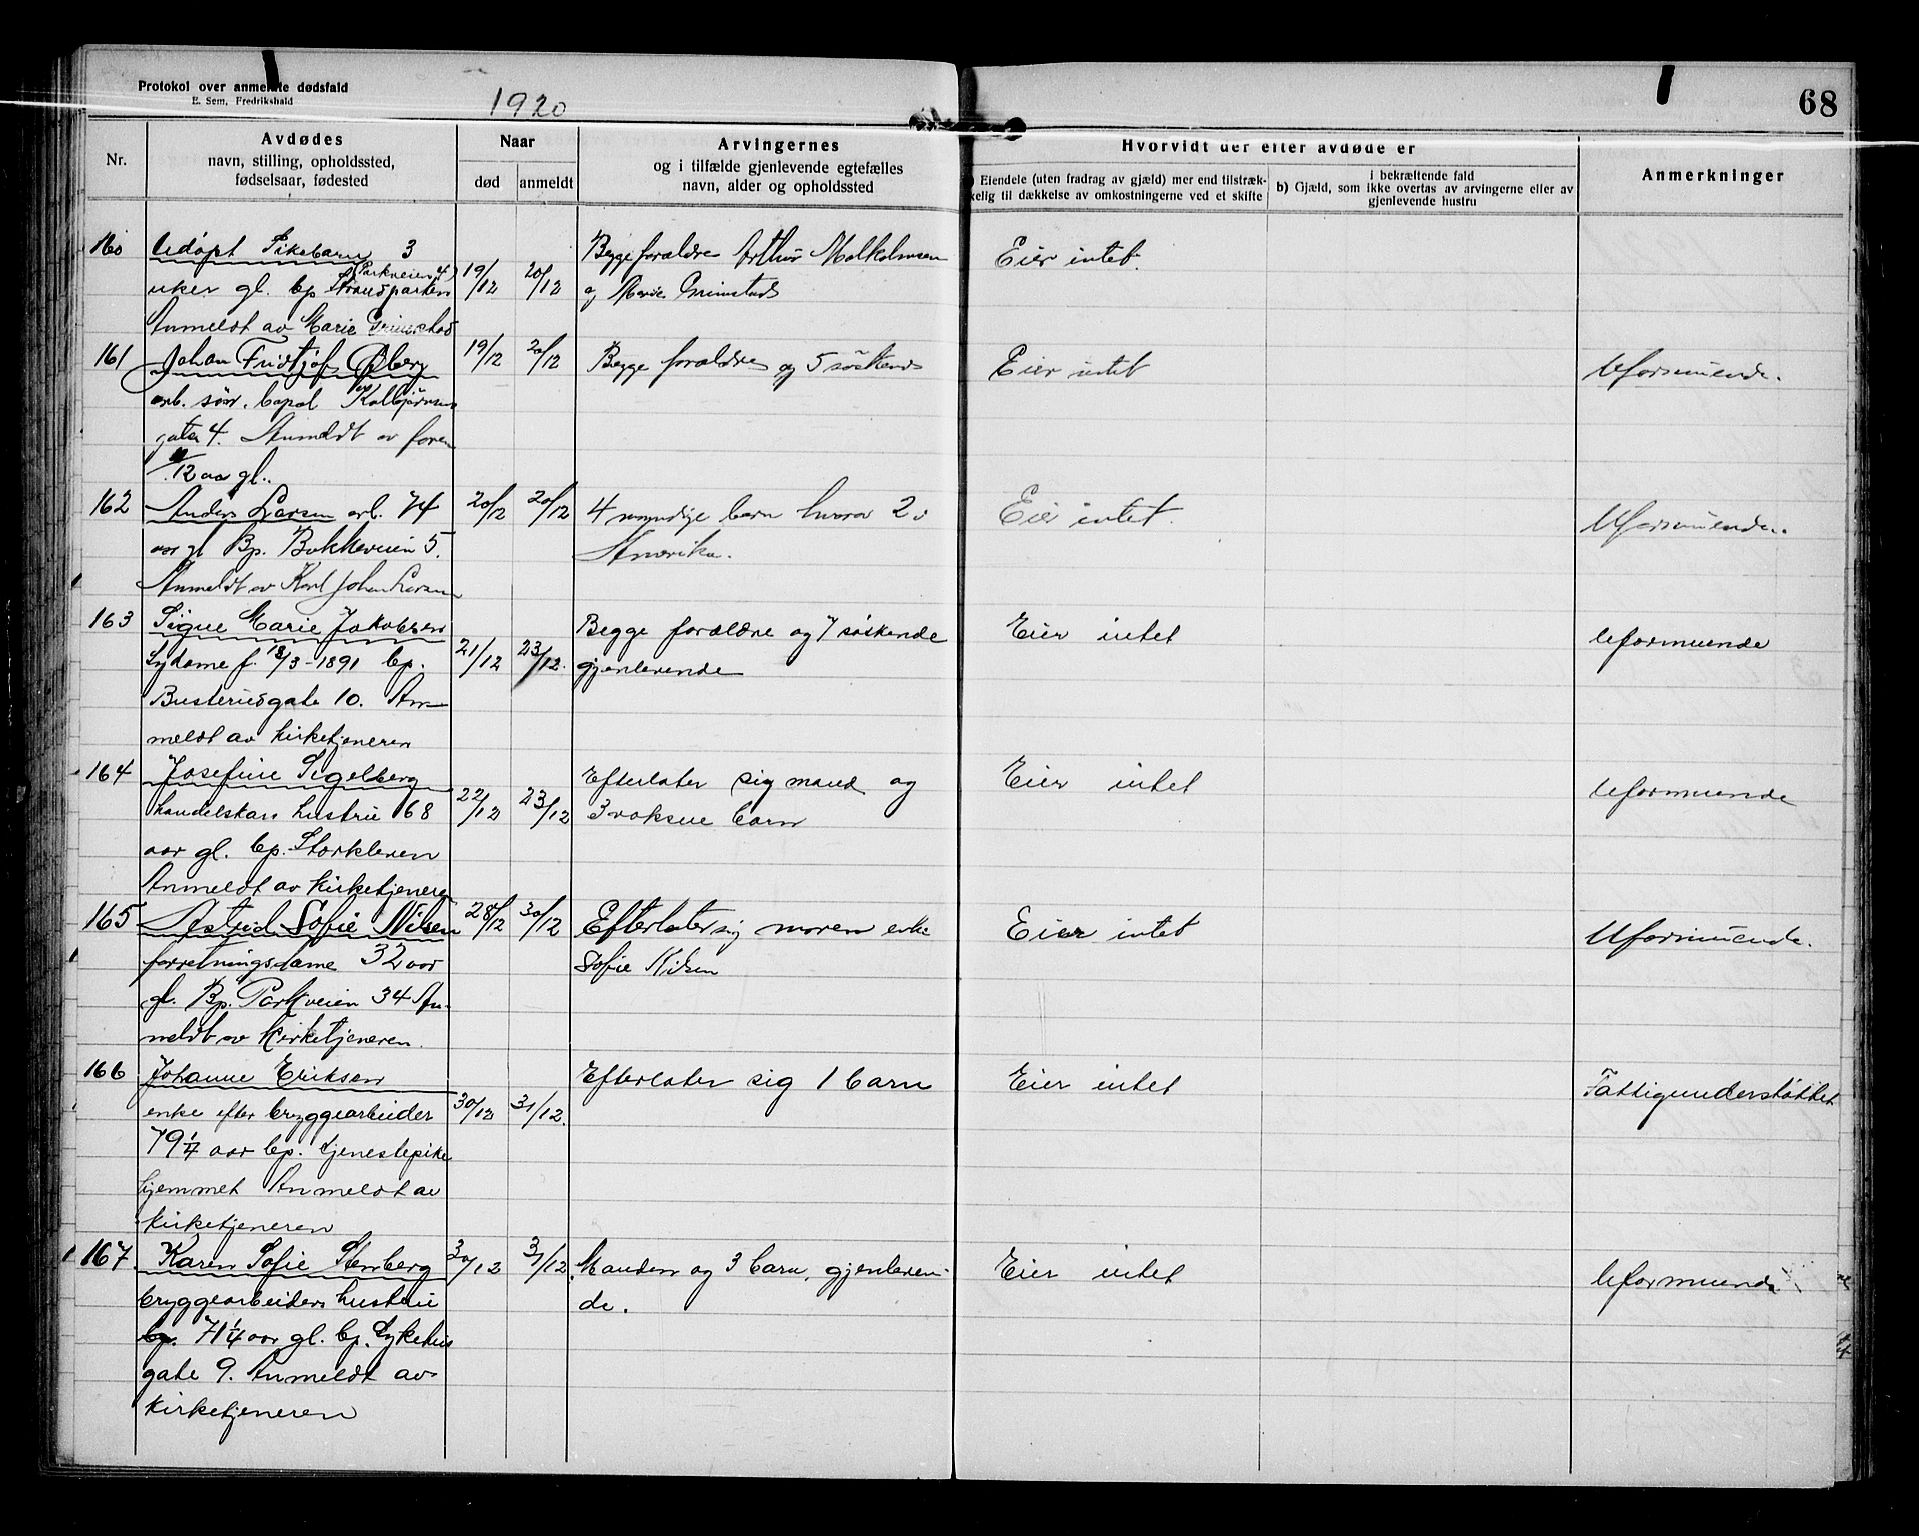 Protokol over anmeldte dødsfald
E. Sem, Fredrikshald
1920
68
Nr.
Avdødes
navn, stilling, opholdssted,
fødselsaar, fødested
Naar
død
anmeldt
Arvingernes
og i tilfælde gjenlevende egtefælles
navn, alder og opholdssted
Hvorvidt der efter avdøde er
a) Eiendele (uten fradrag av gjæld) mer end tilstræk-
kelig til dækkelse av omkostningerne ved et skifte
i bekræftende fald
b) Gjæld, som ikke overtas av arvingerne eller av
gjenlevende hustru
Anmerkninger
160
Udøpt Pikebarn 3
(Parkveien 4)
uker gl. bp Strandparken
Anmeldt av Marie Grimstad
19/12
20/12
Begge forældre Arthur Malkolmsen
og Marie Grimstad
Eier intet.
161
Johan Fridtjof Øberg
arb. søn. bopæl Kolbjørnsens
gate 4. Anmeldt av faren
/12 aar gl.
19/12
20/12
Begge forældre og 5 søskende
Eier intet
Uformuende.
162
Anders Larsen arb. 74
aar gl Bp. Bakkeveien 5.
Anmeldt av Karl Johan Larsen
20/12
20/12
4 myndige barn hvorav 2 i
Amerika.
Eier intet.
Uformuende.
163
Signe Marie Jakobsen
Sydame f. 18/3-1891 bp.
Busterudsgate 10. An-
meldt av kirketjeneren
21/12
23/12.
Begge forældre og 7 søskende
gjenlevende
Eier intet
Uformuende
164
Josefine Segelberg
handelskars hustru 68
aar gl. bp. Storkleven
Anmeldt av kirketjeneren
22/12
23/12
Efterlater sig mand og
3 voksne barn
Eier intet
Uformuende
165
Astrid Sofie Nilsen
forretningsdame 32 aar
gl. Bp. Parkveien 34 An-
meldt av Kirketjeneren.
28/12
30/12
Efterlater sig moren enke
Sofie Nilsen
Eier intet
Uformuende.
166
Johanne Eriksen
enke efter bryggearbeider
79 1/4 aar bp. tjenestepike
hjemmet Anmeldt av
kirketjeneren
30/12
31/12.
Efterlater sig 1 barn
Eier intet
Fattigunderstøttet
167.
Karen Sofie Stenberg
bryggearbeiders hustru
bp. 71 1/4 aar gl. bp. Sykehus
gate 9. Anmeldt av
kirketjeneren
30/12
31/12
Manden og 3 barn, gjenleven-
de.
Eier intet
Uformuende